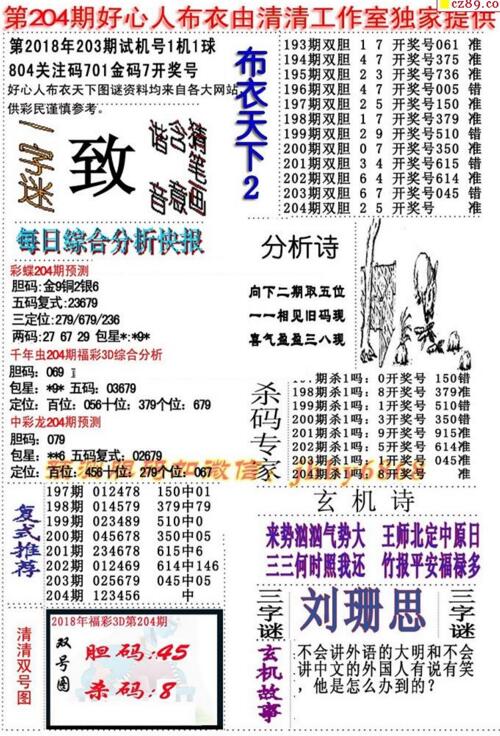 cz89.co
第204期好心人布衣由清清工作室独家提供
第2018年203期试机号1机1球
804关注码701金码7开奖号
好心人布衣天下图谜资料均来自各大网站
供彩民谨慎参考。
一字迷
致
猜笔画
含意
谐音
布衣天下2
193期双胆 1 7 开奖号061 准
194期双胆 4 7 开奖号375 准
195期双胆 2 3 开奖号736 准
196期双胆 4 7 开奖号005 错
197期双胆 1 5 开奖号150 准
198期双胆 1 7 开奖号379 准
199期双胆 2 9 开奖号510 错
200期双胆 0 7 开奖号350 准
201期双胆 3 4 开奖号615 错
202期双胆 6 4 开奖号614 准
203期双胆 6 7 开奖号045 错
204期双胆 2 5 开奖号 准
每日综合分析快报
彩蝶204期预测
胆码:金9铜2银6
五码复式:23679
三定位:279/679/236
两码:27 67 29 包星*:*9*
千年虫204期福彩3D综合分析
胆码: 069
包星: *9* 五码: 03679
定位: 百位: 056十位: 379个位: 679
中彩龙204期预测
胆码: 079
包星: **6 五码复式: 02679
定位: 百位:456十位: 279个位: 067
分析诗
向下二期取五位
一一相见旧码现
喜气盈盈三八现
杀码专家
197期杀1吗: 0开奖号 150错
198期杀1吗: 8开奖号 379准
199期杀1吗: 3开奖号 510准
200期杀1吗: 3开奖号 350错
201期杀1吗: 9开奖号 915准
202期杀1吗: 5开奖号 614准
203期杀1吗: 3开奖号 045准
204期杀1吗: 8开奖号 准
复式推荐
197期 012478 150中01
198期 014579 379中79
199期 023489 510中0
200期 045678 350中05
201期 234678 615中6
202期 012469 614中146
203期 025679 045中05
204期 123456 中
玄机诗
来势汹汹气势大 王师北定中原日
三三何时照我还 竹报平安福禄多
三字谜
刘珊思
三字谜
清清双号图
2018年福彩3D第204期
双号图
胆码:45
杀码:8
玄机故事
不会讲外语的大明和不会
讲中文的外国人有说有笑
，他是怎么办到的?